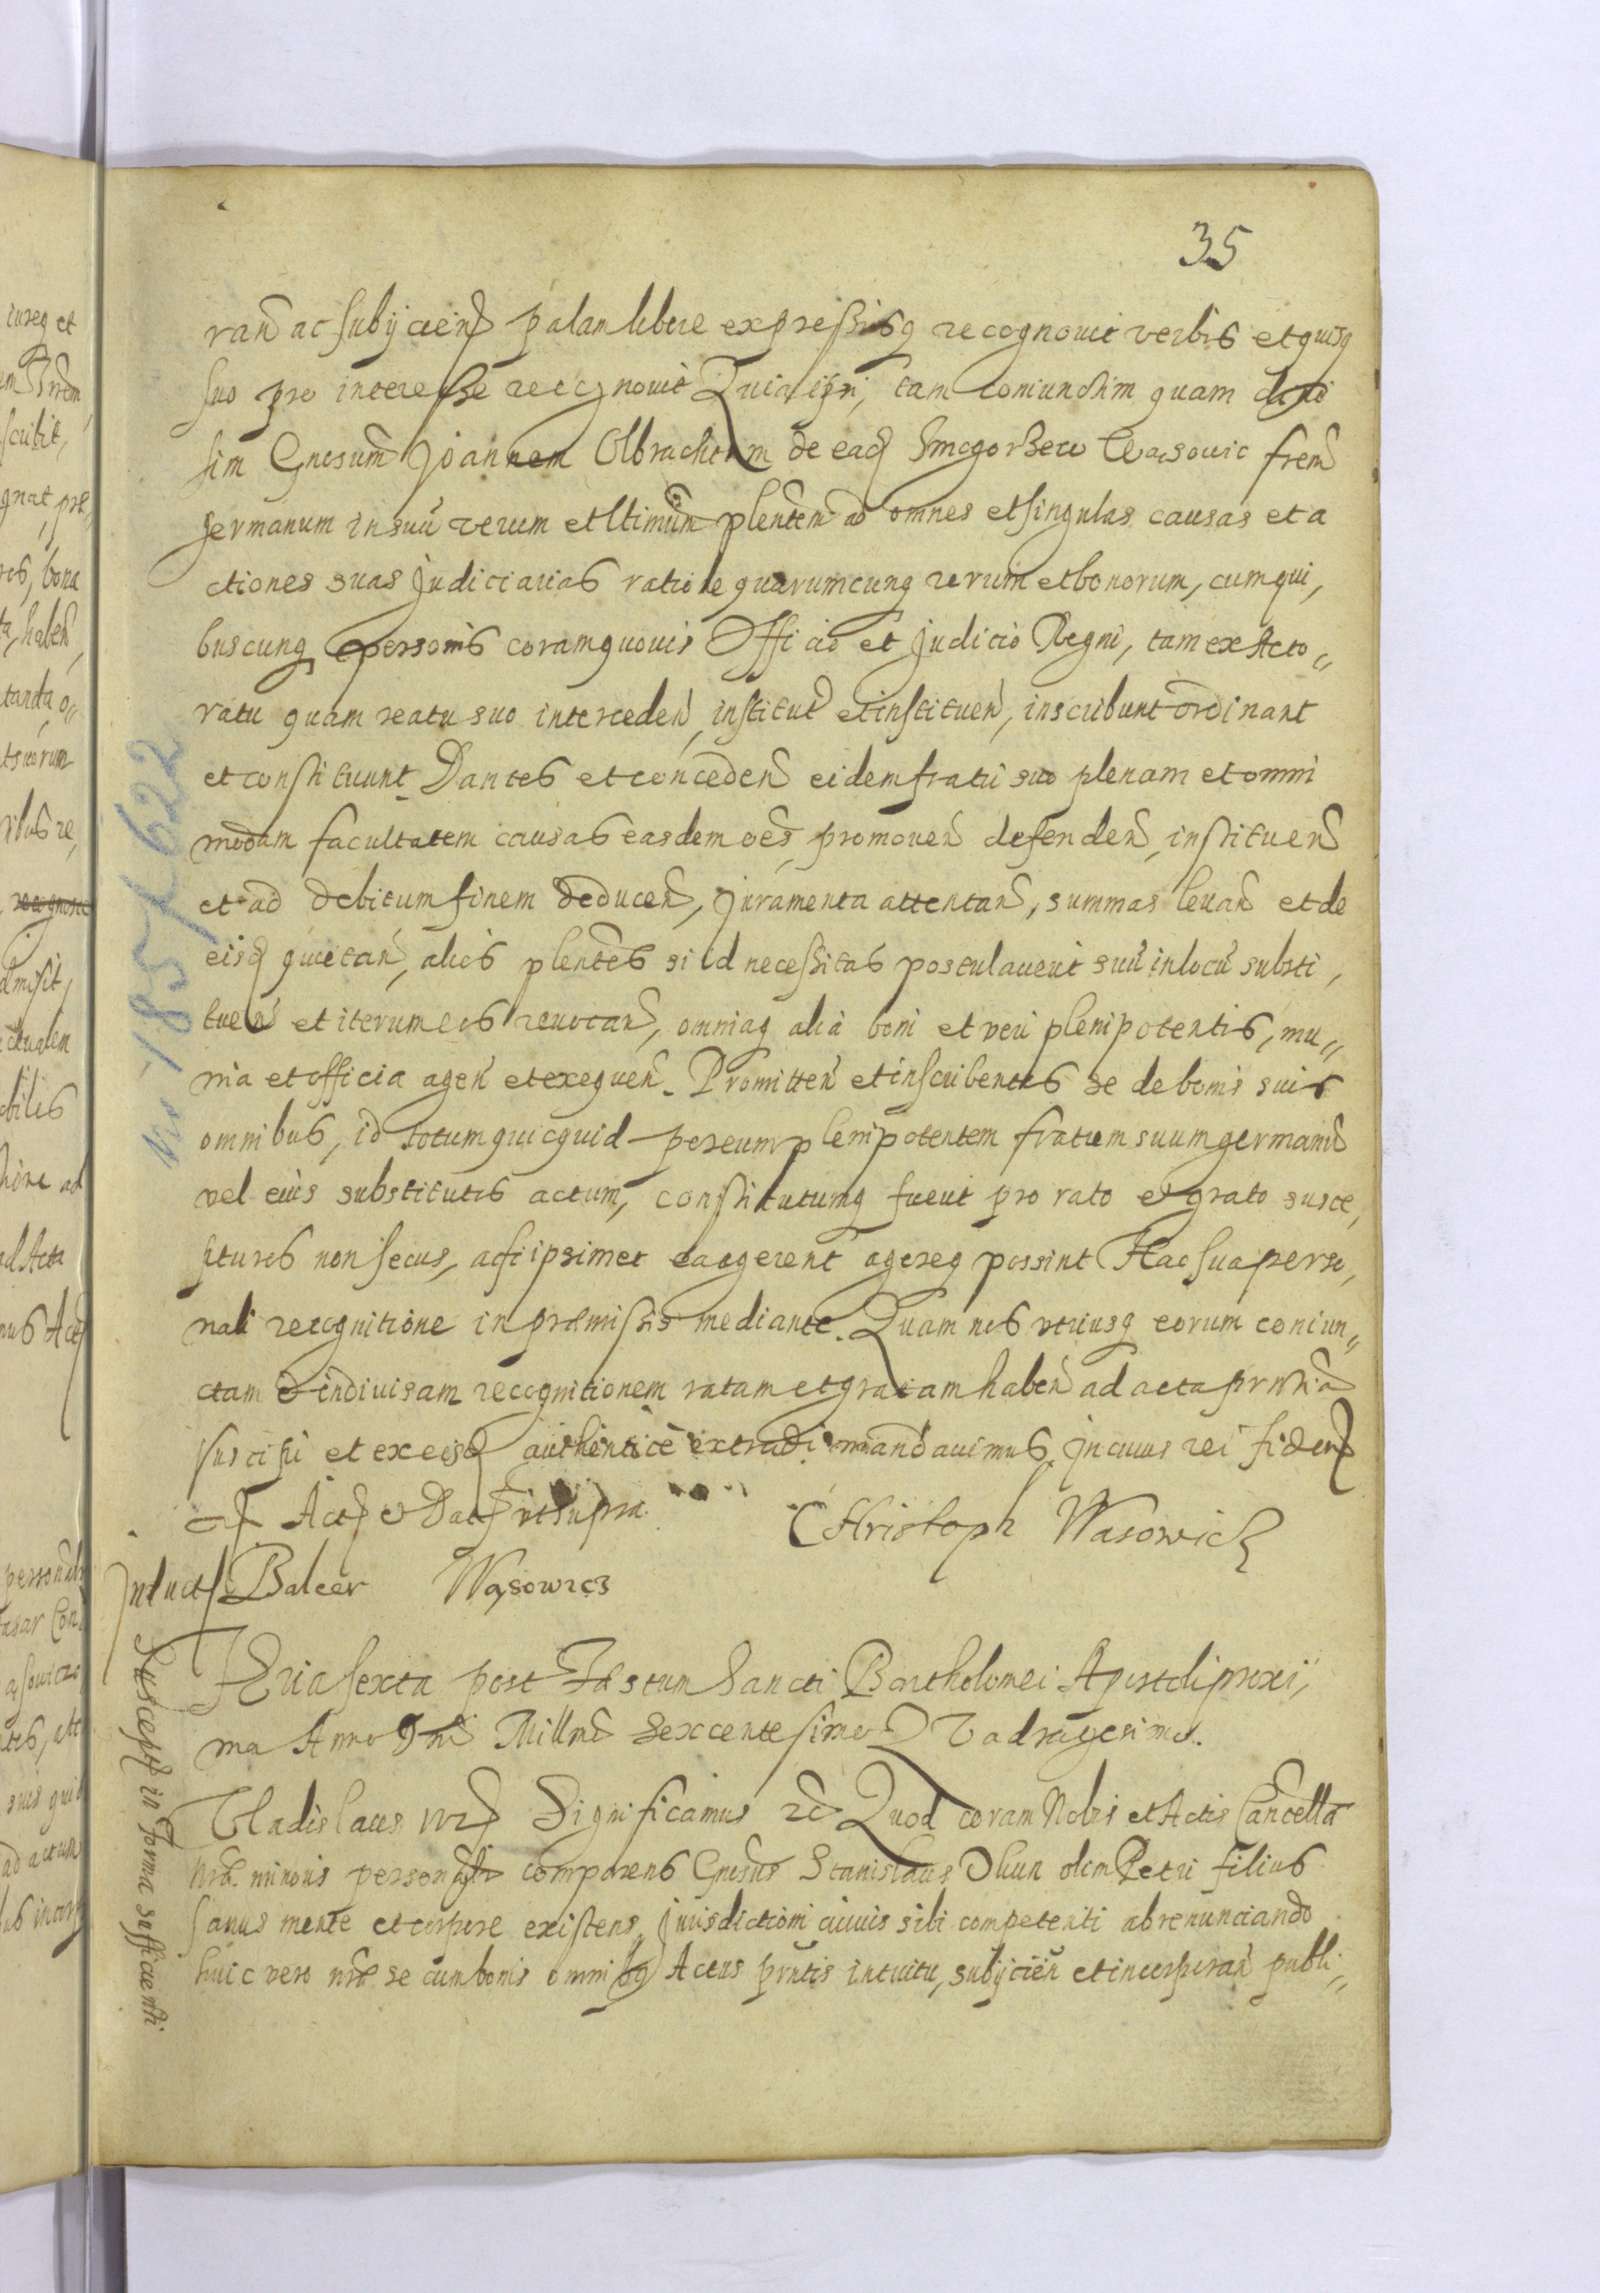 35
ran ac subijcien palam libere expressisq recognouit verbis et quisq
suo pro interesse recognouit Quia ipsi, tam coniunctim quam diui
sim Gnosum Joannem Olbrachtum de eadem Smogorzew Wasowic frem
germanum in suu verum et ltimum plentem ad omnes et singulas causas et a
ctiones suas Judiciarias ratione quarumcunq rerum et bonorum, cum qui,
buscunq personis coram quouis Officio et Judicio Regni, tam ex Acto
ratu quam reatu suo interceden, institut et instituen, inscribunt ordinant
et constituunt Dantes et conceden eidem fratri suo plenam et omni
modam facultatem causas easdem oes promouen defenden, instituen
et ad debitum finem deducen, Juramenta attentan, summas leuan et de
eisd quietan, alios plentes si id necessitas postulauerit suu in locu substi,
tuen et iterum eos reuocan, omniaq alia boni et veri plenipotentis, mu
nia et officia agen et exequen. Promitten et inscribentes se de bonis suis
omnibus, id totum quicquid per eum plenipotentem fratrem suum germanu
vel eius substitutos actum, constitutumq fuerit pro rato et grato susce,
pturos non secus, ac si ipsimet ea agerent agereq possint Hac sua perso,
nali recognitione in præmissis mediante. Quam nos vtriusq eorum coniun
ctam et indiuisam recognitionem ratam et gratam haben ad acta prntia
suscipi et ex eisd authentice extradi mandauimus. In cuius rei fidem
Act et Dat vt supra.
Christoph Wasowicz
Induct Balcer Wąsowicz
Feria sexta post Festum Sancti Bartholomei Apostoli proxi,
ma Anno Dni Millmo Sexcentesimo Quadragesimo.
Suscept in forma sufficienti
Vladislaus Significamus Quod coram Nobis et Actis Cancella
nræ minoris personalr comparens Gnosus Stanislaus Okun olim Petri filius
sanus mente et corpore existens, Jurisdictioni cuiuis sibi competenti abrenunciando
huic vero nræ se cum bonis omnibq Actus prntis intuitu, subijcien et incorporan publi
No 185/622